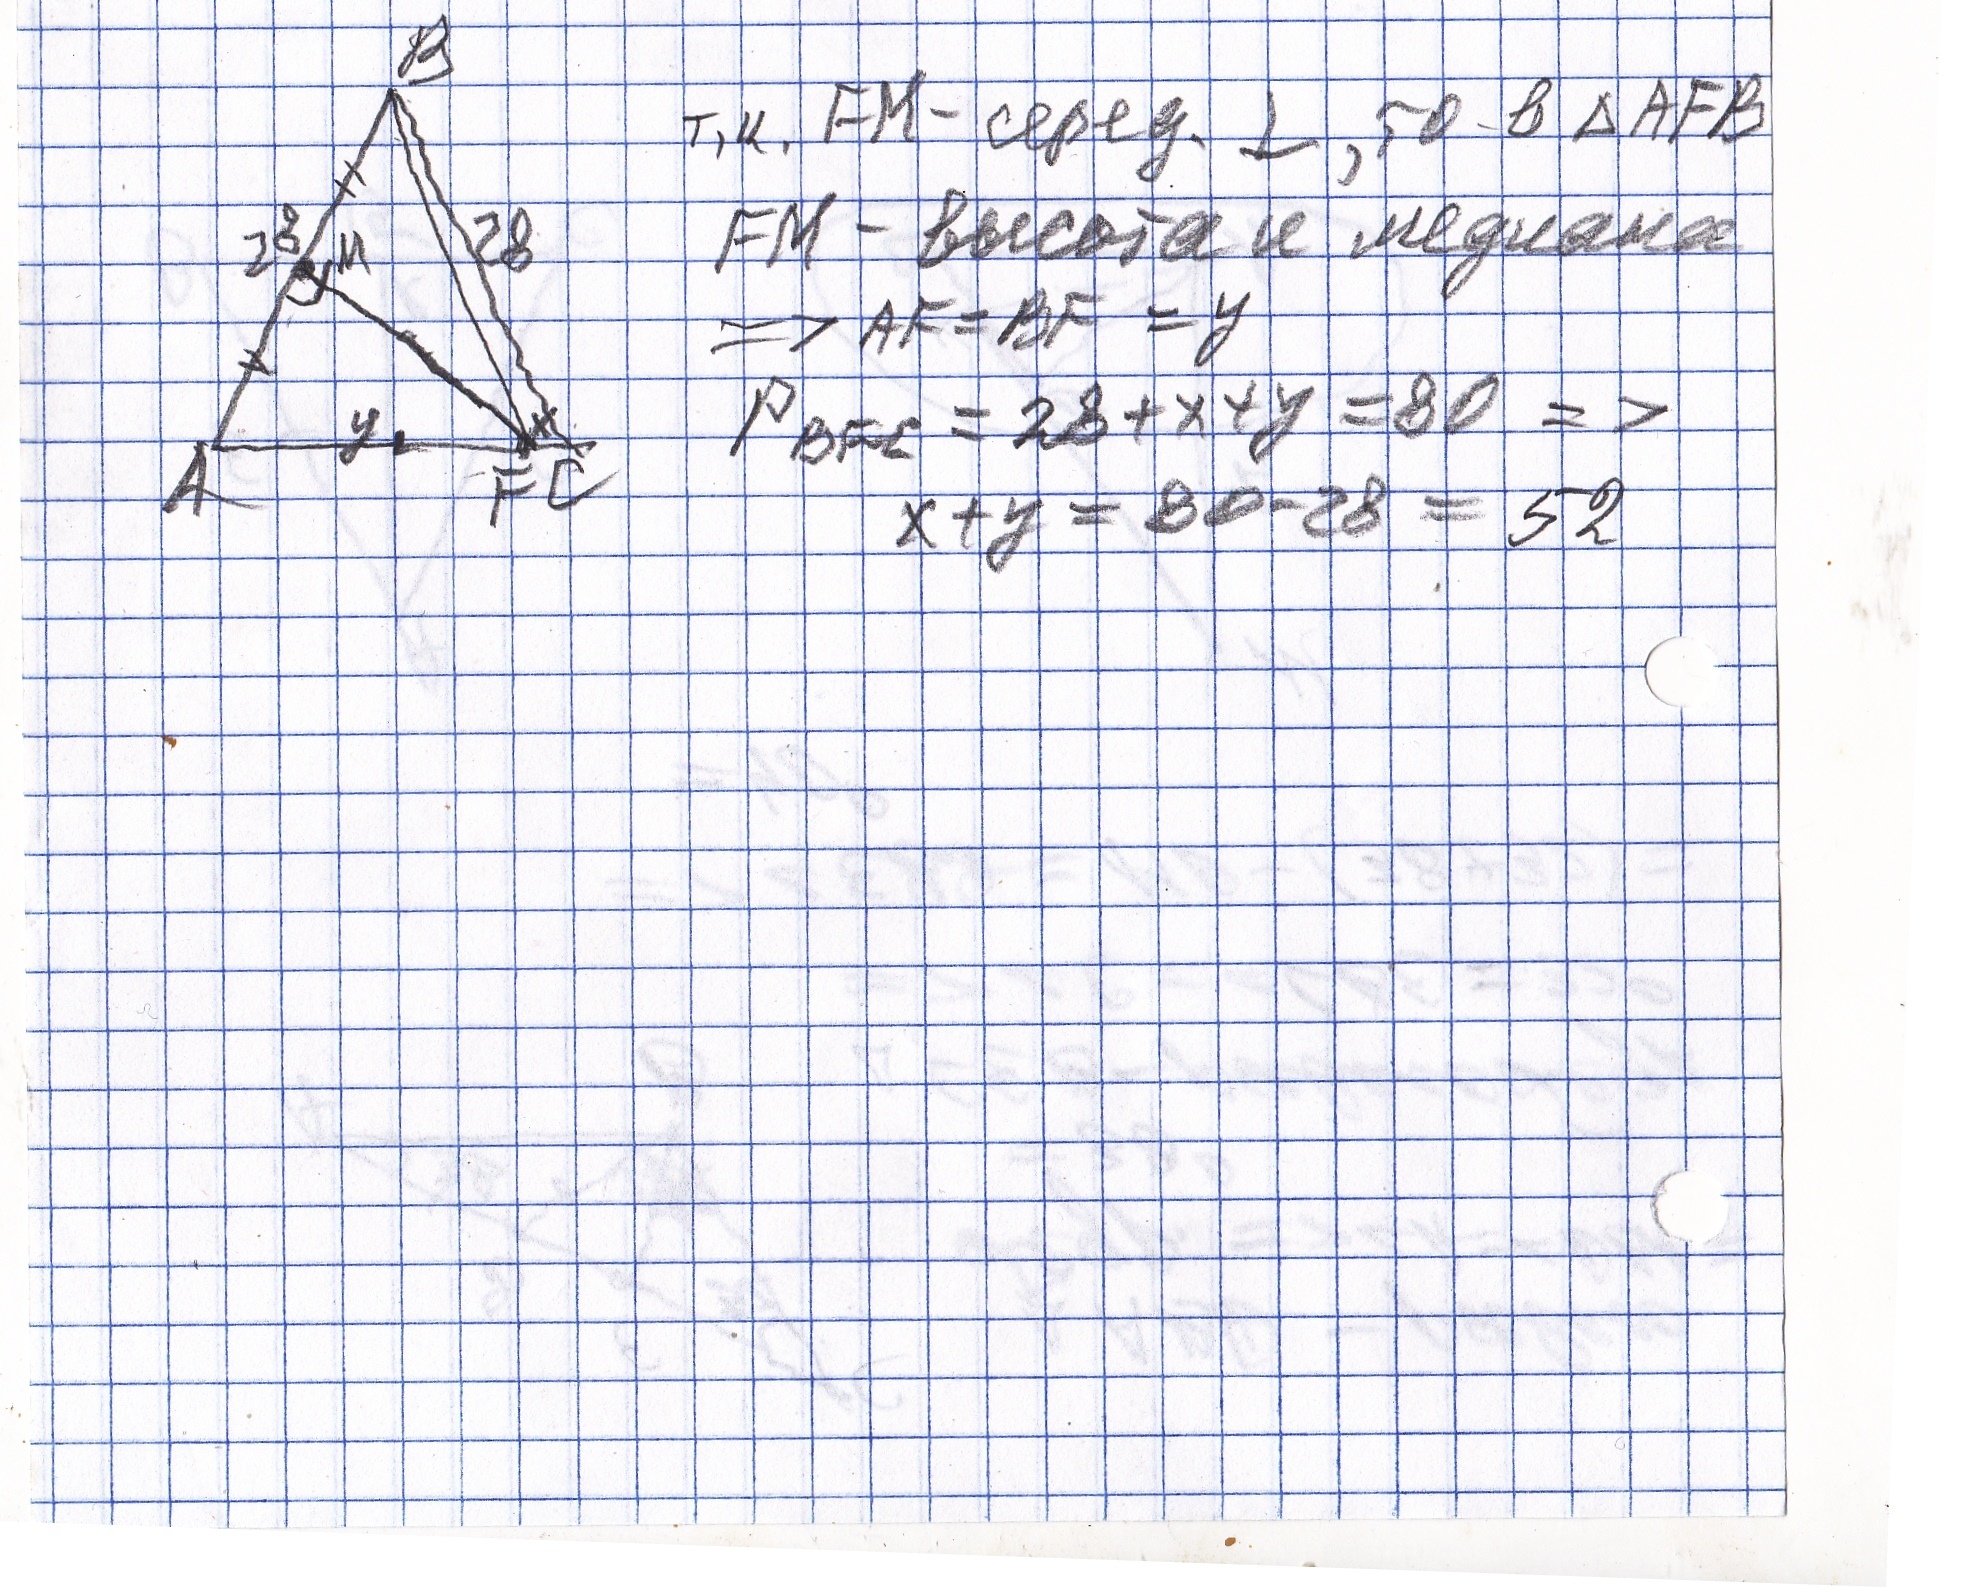 B
28 M 28
y x
A F C
т.к. FM - серед. ⊥, то в △ AFB
FM - высота и медиана
=> AF = BF = y
P BFC = 28 + x + y = 80 =>
x + y = 80 - 28 = 52